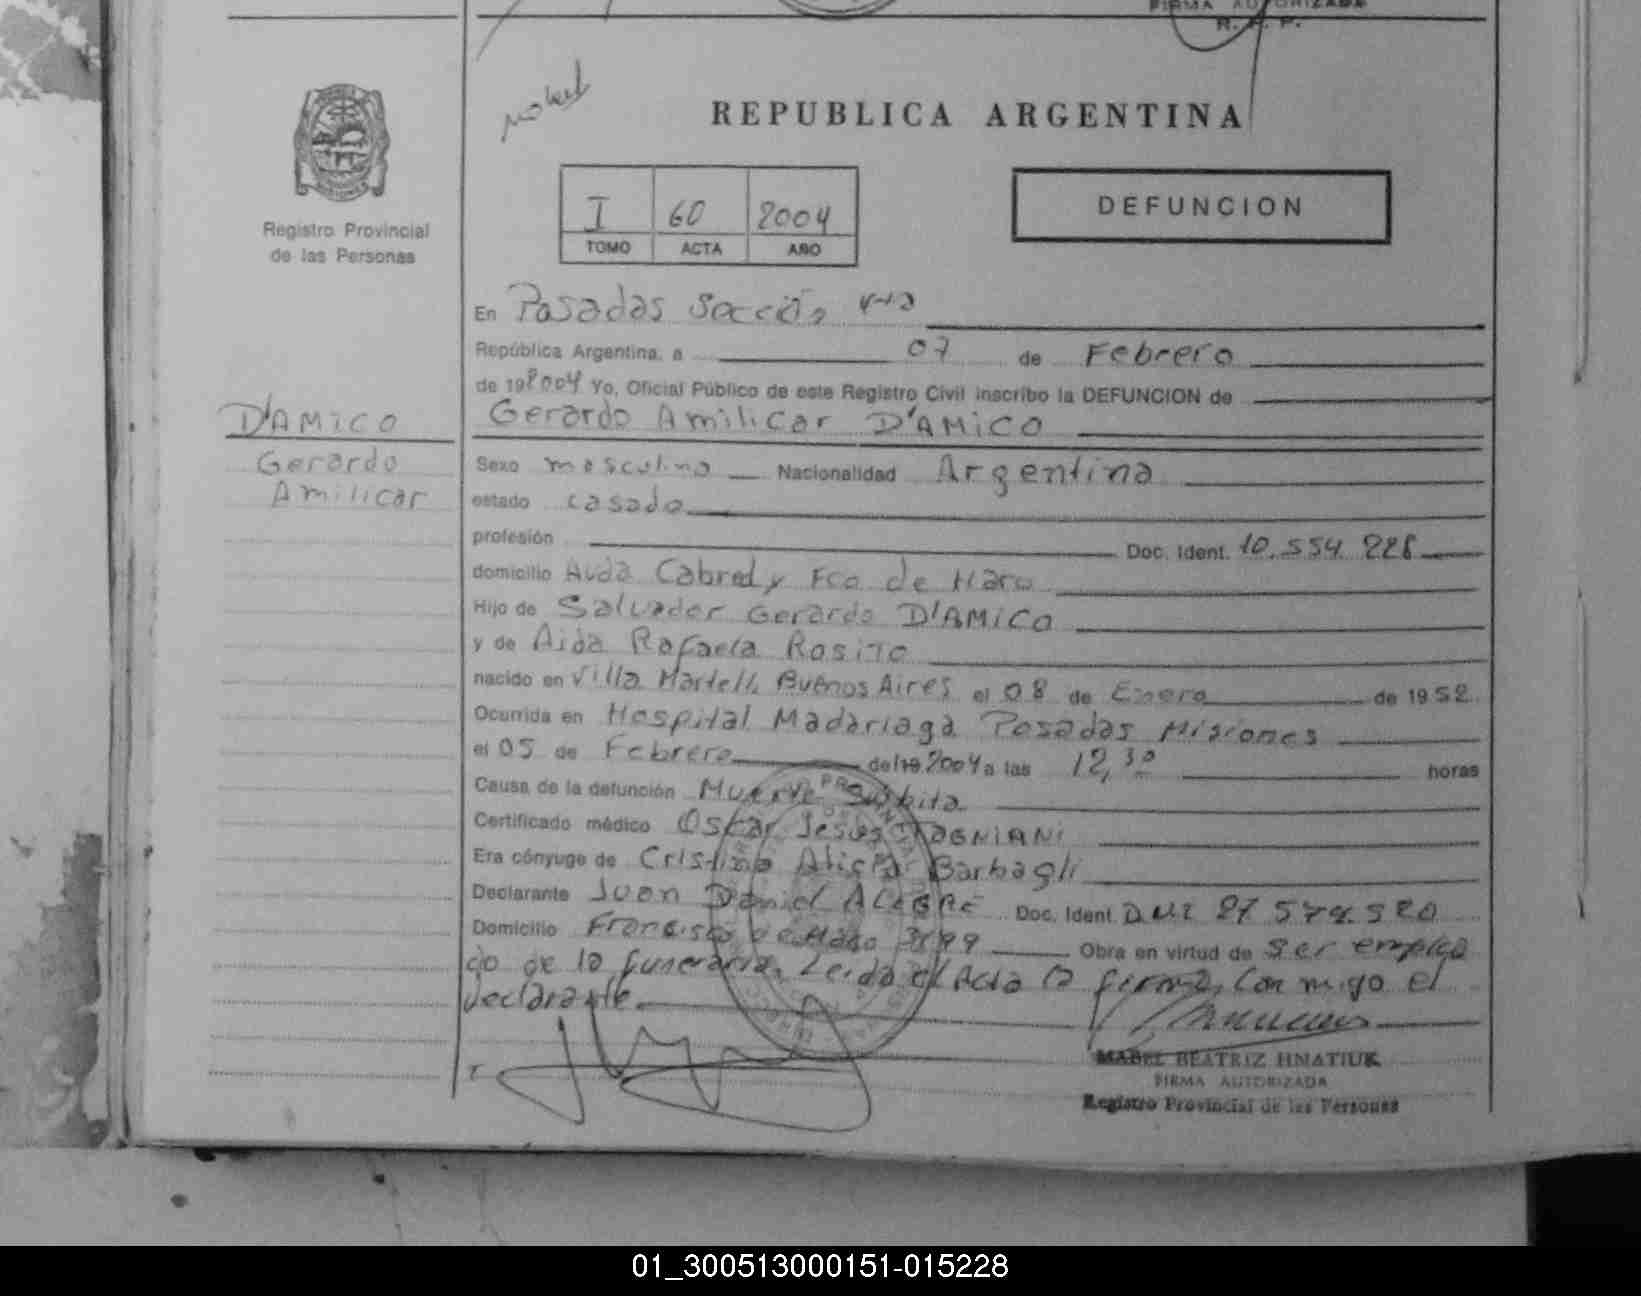 FIRMA AUTORIZADA
R. P. P.
REPUBLICA ARGENTINA
I 60 2004
TOMO ACTA AÑO
DEFUNCION
Registro Provincial
de las Personas
En Posadas Sección
República Argentina, a 07 de Febrero
de 19 2004 Yo, Oficial Público de este Registro Civil inscribo la DEFUNCION de
Gerardo Amilicar D'AMICO
D'AMICO
Gerardo
Amilicar
Sexo masculino Nacionalidad Argentina
estado casado
profesión Doc. Ident. 10.554.228
domicilio Avda Cabred y Fco de Haro
Hijo de Salvador Gerardo D'AMICO
y de Aida Rafaela Rosito
nacido en Villa Martelli, Buenos Aires el 08 de Enero de 1952
Ocurrida en Hospital Madariaga Posadas Misiones
el 05 de Febrero de 19 2004 a las 12,30 horas
Causa de la defunción Muerte Subita
Certificado médico Oscar Jesús
Era cónyuge de Cristina Alicia Barbagli
Declarante Juan Daniel ALEGRE Doc. Ident. D.N.I 27.574.520
Domicilio Francisco de Haro 3899 Obra en virtud de ser emplea
do de la funeraria. Leida el Acta la firma, con migo el
declarante
MABEL BEATRIZ HNATIUK
FIRMA AUTORIZADA
Registro Provincial de las Personas
01_300513000151-015228